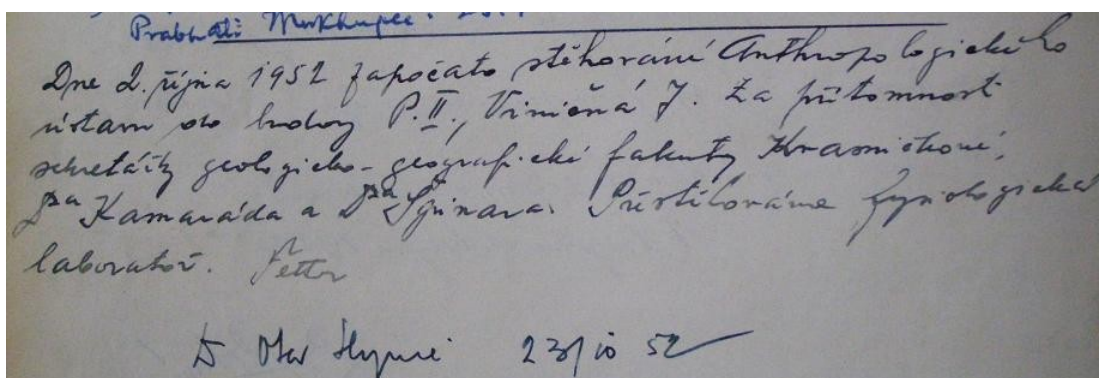 Prabhati Mukherjee
Dne 2. října 1952 započato stěhování Anthropologického
ústavu do budovy P. II., Viničná 7. Za přítomnosti
sekretářky geologicko-geografické fakulty Krasničkové,
Dra Kamaráda a Dra Špinara. Přestěhováme fysiologickou
laboratoř. Fetter
Dr Otar 23/10 52